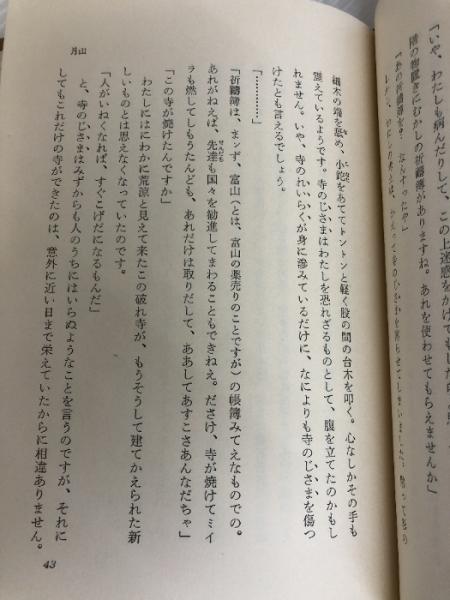 「いや、わたしも病んだりして、この上迷惑をかけてもした
隣の物置きにむかしの祈禱簿がありますね。あれを使わせてもらえませんか」
「あの祈禱簿を？　なんすったや」
の端を
、小鉈をあててトントンと軽く股の間の台木を叩く。心なしかその手も
震えているようです。寺のじさまはわたしを恐れざるものとして、腹を立てたのかもし
れません。いや、寺のれいらくが身に滲みているだけに、なによりも寺のじさまを傷つ
けたとも言えるでしょう。
「…………」
「祈禱簿は、まンず、富山（とは、富山の薬売りのことですが）の帳簿みてえなものでの。
あれがねえば、先達も国々を勧進してまわることもできねえ。ださけ、寺が焼けてミイ
ラも燃してしもうたんども、あれだけは取りだして、ああしてあすこさあんなだちゃ」
「この寺が焼けたんですか」
わたしにはにわかに荒涼と見えて来たこの破れ寺が、もうそうして建てかえられた新
しいものとは思えなくなっていたのです。
「人がいねくなれば、すぐこげだになるもんだ」
と、寺のじさまはみずからも人のうちにはいらぬようなことを言うのですが、それに
してもこれだけの寺ができたのは、意外に近い日まで栄えていたからに相違ありません。
月山
43